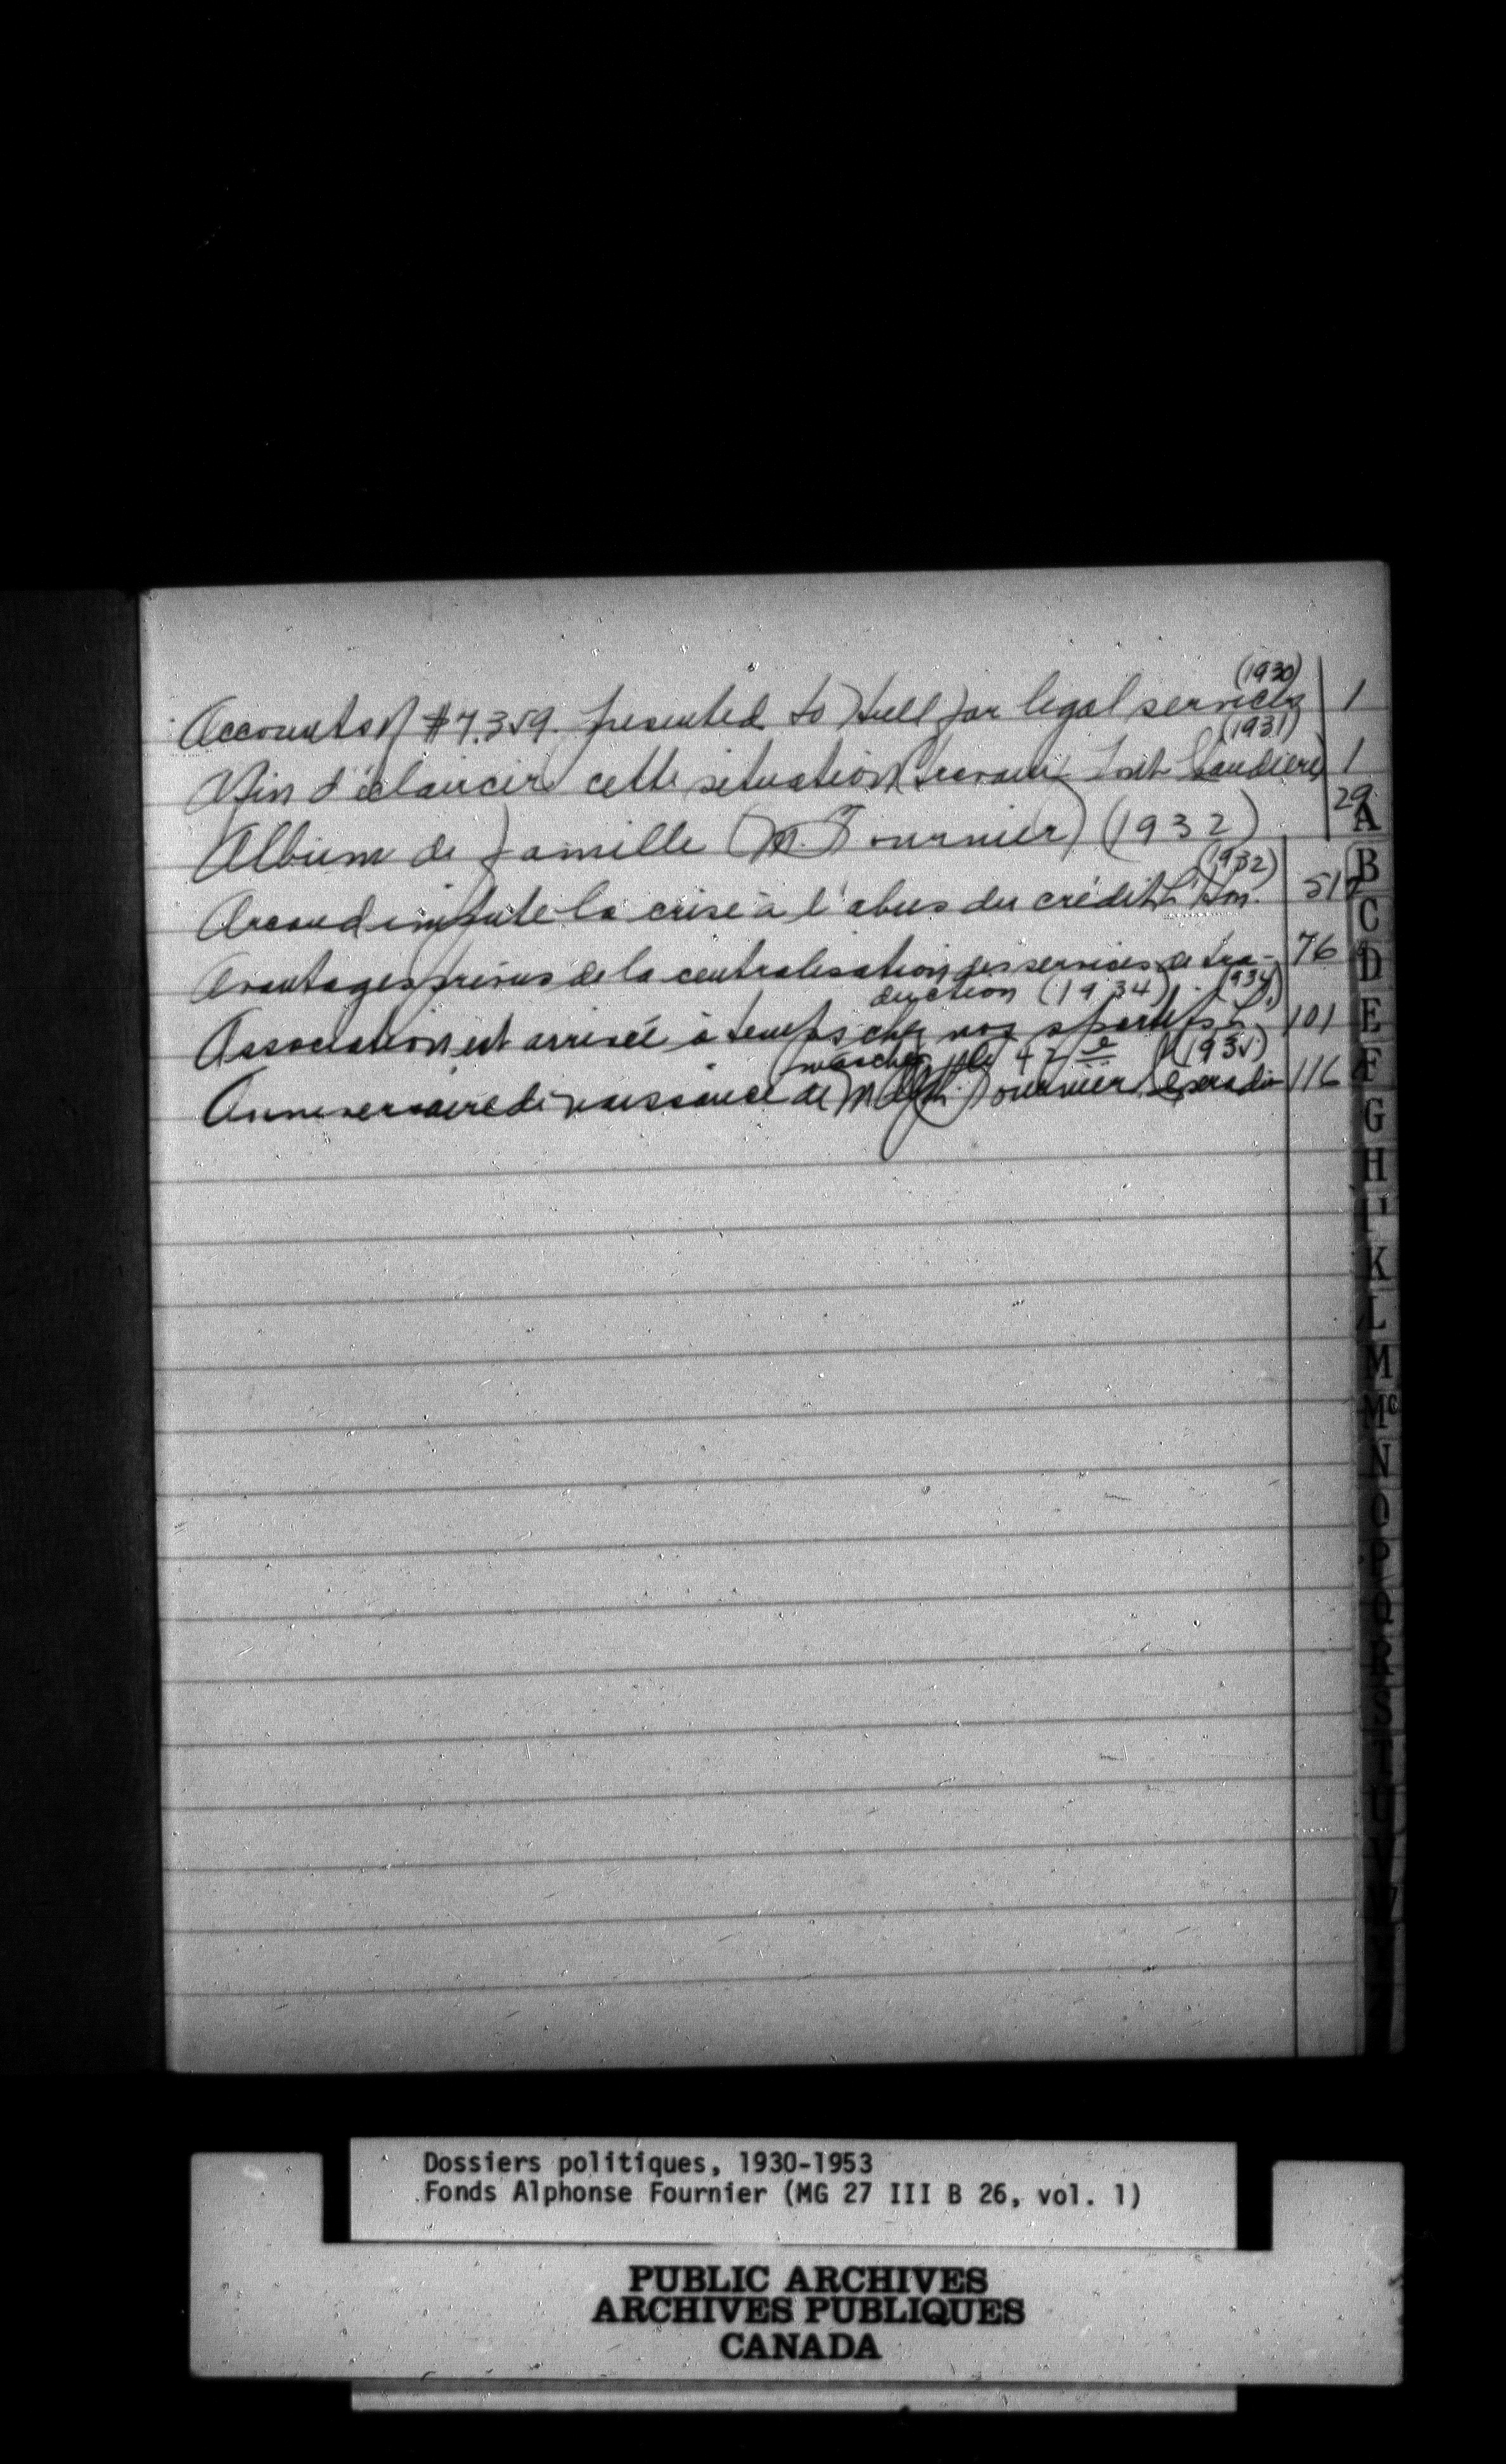 (1930)
Accounts of $7.359. presented to Hull for legal services 1
(1931)
Afin d'éclaircir cette situation travaux Pont Chaudière 1
Album de famille (M. Fournier) (1932) 29
(1932)
Arcand impute la crise à l'abus du crédit L'Hon. 51
Avantages prévus de la centralisation des services de tra- 76
duction (1934) (1934)
Association est arrivée à temps chez nos sportifs L' 101
42e (1935)
Anniversaire de naissance de M. Alph. Fournier 116
A
B
C
D
E
F
G
H
I J
K
L
M
Mc
N
O
P
Q
R
S
T
U
V
W
Dossiers politiques, 1930-1953
Fonds Alphonse Fournier (MG 27 III B 26, vol. 1)
PUBLIC ARCHIVES
ARCHIVES PUBLIQUES
CANADA